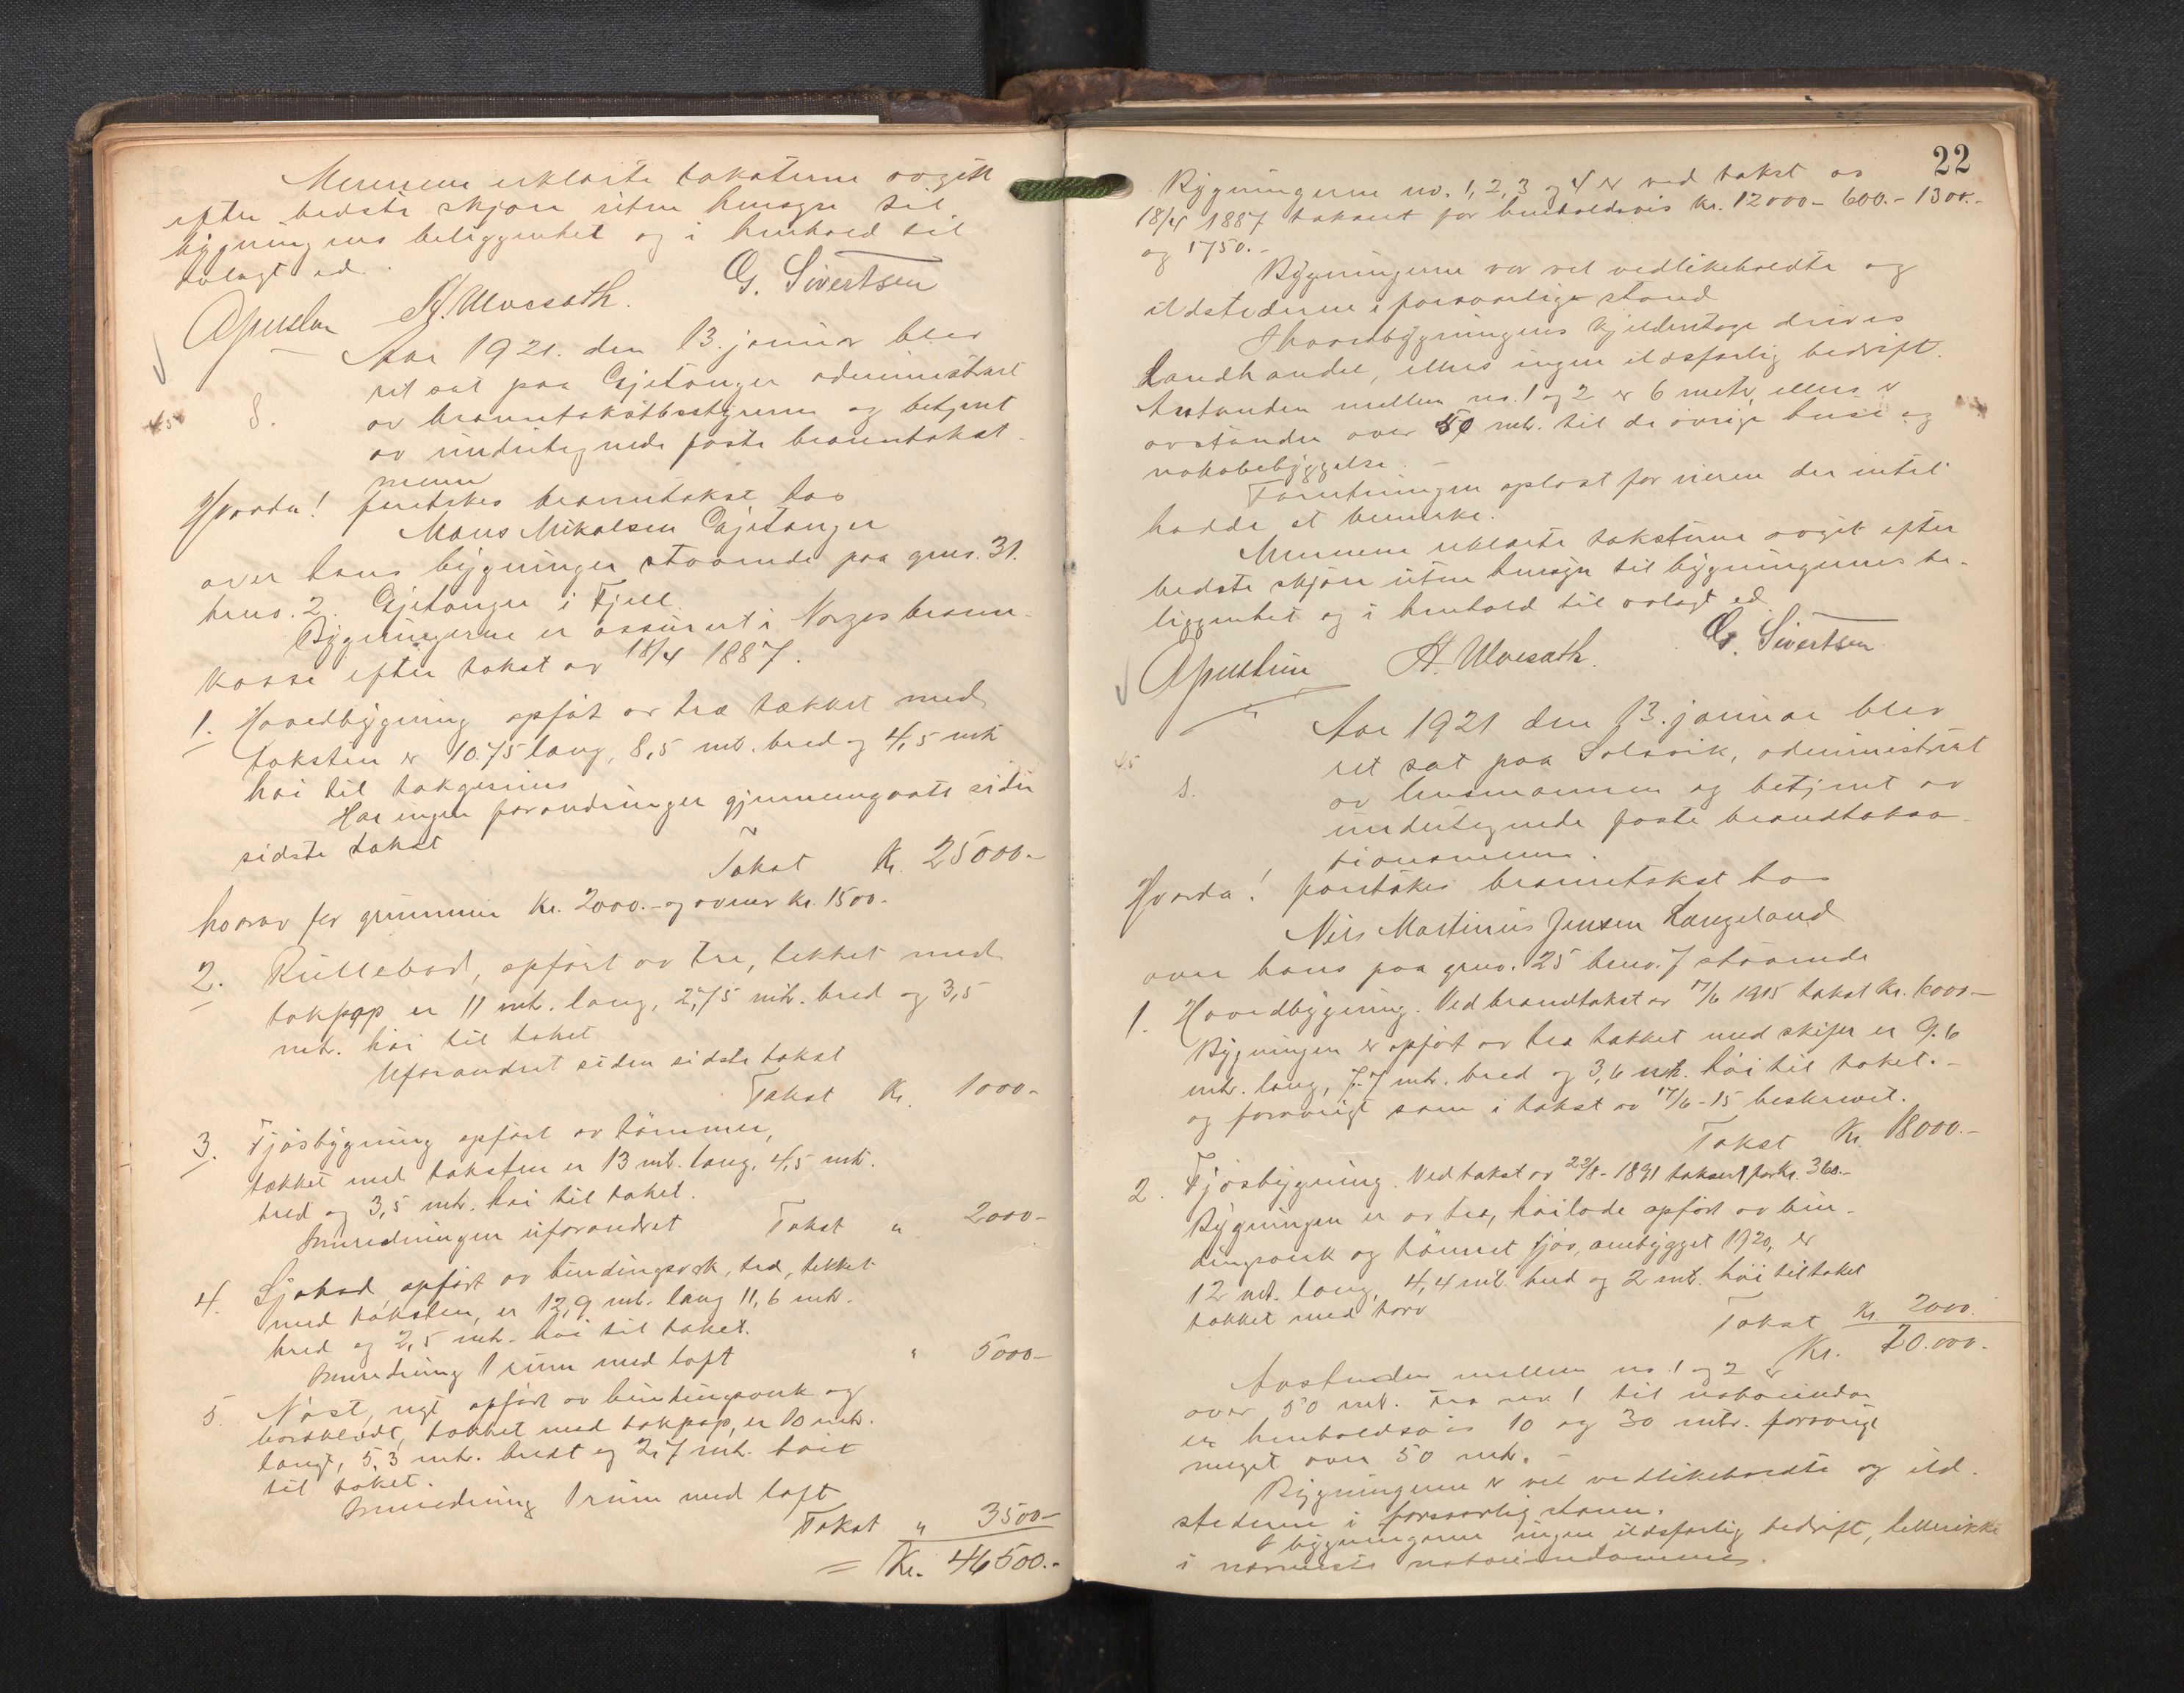 Mennene erklærte taksterne avgitt
efter bedste skjøn uten hensyn til
bygningens beliggenhet og i henhold til
avlagt ed.
A. Ulvesæth. G. Sivertsen
Aar 1921. den 13. januar blev
ret sat paa Gjetanger administrert
av branntakstbestyreren og betjent
av undertegnede faste branntakst-
menn
Hvorda! foretokes branntakst hos
Mons Mikalsen Gjetanger
over hans bygninger staaende paa gnrs. 31.
brno. 2. Gjetanger i Fjell.
Bygningerne er assurert i Norges brann-
kasse efter takst av 18/4 1887.
1. Hovedbygning opført av træ tækket med
taksten er 10.75 lang, 8,5 mtr. bred og 4,5 mtr
høi til takgesims
Har ingen forandringer gjennemgaatt siden
sidste takst
Takst Kr. 25000.-
hvorav for grunnmur Kr. 2000.- og ovner Kr. 1500.-
2. Rullebod, opført av træ, tekket med
takpap er 11 mtr. lang, 2,75 mtr. bred og 3,5
mtr. høi til taket
Uforandret siden sidste takst
Takst Kr. 1000-
3. Fjøsbygning opført av tømmer,
tækket med taksten er 13 mtr. lang, 4,5 mtr.
bred og 3,5 mtr. høi til taket.
Innredningen uforandret Takst " 2000-
4. Sjøbod opført av bindingsverk, træ, tekket
med taksten, er 12,9 mtr. lang 11,6 mtr.
bred og 2,5 mtr. høi til taket.
Innredning 1 rum med loft " 5000-
5. Nøst, nyt opført av bindingsverk og
bordklædt, takket med takpap, er 10 mtr.
langt, 5,3 mtr. bredt og 2,7 mtr. høit
til taket.
Innredning 1 rum med loft
Takst " 3500-
= Kr. 46500.-
22
Bygningerne no. 1, 2, 3 og 4 er ved takst av
18/4 1887 taksert for henholdsvis Kr. 12000- 600.- 1300.-
og 1750.-
Bygningerne var vel vedlikeholdte og
ildstederne i forsvarlig stand
I hovedbygningens kjelderetage drives
Landhandel, ellers ingen ildsfarlig bedrift.
Avstanden mellem no. 1 og 2 er 6 mtr, ellers er
avstanden over 50 mtr. til de øvrige huse og
nabobebyggelse.-
Forretningen oplæst for eieren der intet
hadde at bemerke.
Mennene erklærte taksterne avgit efter
bedste skjøn uten hensyn til bygningernes be-
liggenhet og i henhold til avlagt ed
A. Ulvesæth. G. Sivertsen
Aar 1921 den 13. januar blev
ret sat paa Solsvik, administrert
av lensmannen og betjent av
undertegnede faste brandtaksa-
tionsmenn.
Hvorda! foretokes branntakst hos
Nils Martinius Jensen Langeland
over hans paa gnrs. 25 brno. 7 staaende
1. Hovedbygning. Ved brandtakst av 17/6 1915 takst Kr. 6000-
Bygningen er opført av træ tækket med skifer er 9.6
mtr. lang, 7.7 mtr. bred og 3,6 mtr. høi til taket.-
og forøvrigt som i takst av 17/6-15 beskrevet.
Takst Kr. 18000.-
2. Fjøsbygning. Ved takst av 22/8-1891 taksert for Kr. 360.-
Bygningen er av træ, høilade opført av bin-
dingsverk og tømret fjøs, ombygget 1920, er
12 mtr. lang, 4,4 mtr. bred og 2 mtr. høi til taket
takket med torv
Takst Kr. 2000.
Kr. 20.000.-
Avstanden mellem no. 1 og 2 er
over 50 mtr. Fra no. 1 til naboeiendom
er henholdsvis 10 og 30 mtr. forøvrigt
meget over 50 mtr.-
Bygningerne er vel vedlikeholdte og ild-
stederne i forsvarlig stann.
I bygningerne ingen ildsfarlig bedrift, hellerikke
i nærmeste naboeiendommer.